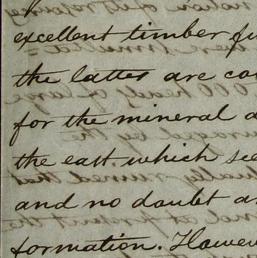 excellent timber fu
the latter are co
for the mineral a
the east which see
and no doubt a
formation. Howev